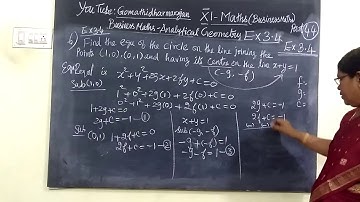 YouTube: Gomathidharmarajan XI-Maths (Business Maths)
Ex 3.4 Business Maths - Analytical Geometry Ex 3.4
4) Find the eqn of the circle on the line joining the
Points (1,0), (0,1) and having its centre on the line x+y=1
(-g, -f)
is x²+y²+2gx+2fy+c=0
Sub (1,0)
1²+0²+2g(1)+2f(0)+c=0
1+2g+c=0
2g+c=-1 —①
0²+1²+2g(0)+2f(1)+c=0
Sub (0,1) 1+2f+c=0
2f+c=-1 —②
x+y=1
Sub (-g, -f)
-g+(-f)=1
-g-f=1 —③
2g+c=-1
2f+c=-1
f=
g=
c=